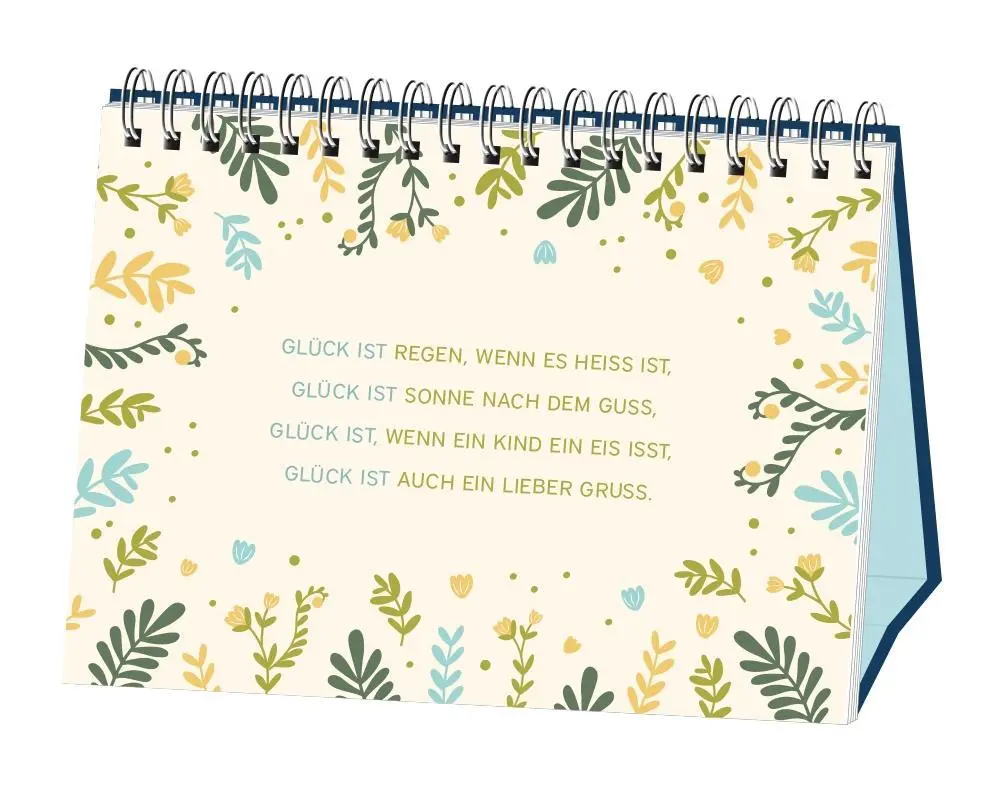 GLÜCK IST REGEN, WENN ES HEISS IST,
GLÜCK IST SONNE NACH DEM GUSS,
GLÜCK IST, WENN EIN KIND EIN EIS ISST,
GLÜCK IST AUCH EIN LIEBER GRUSS.